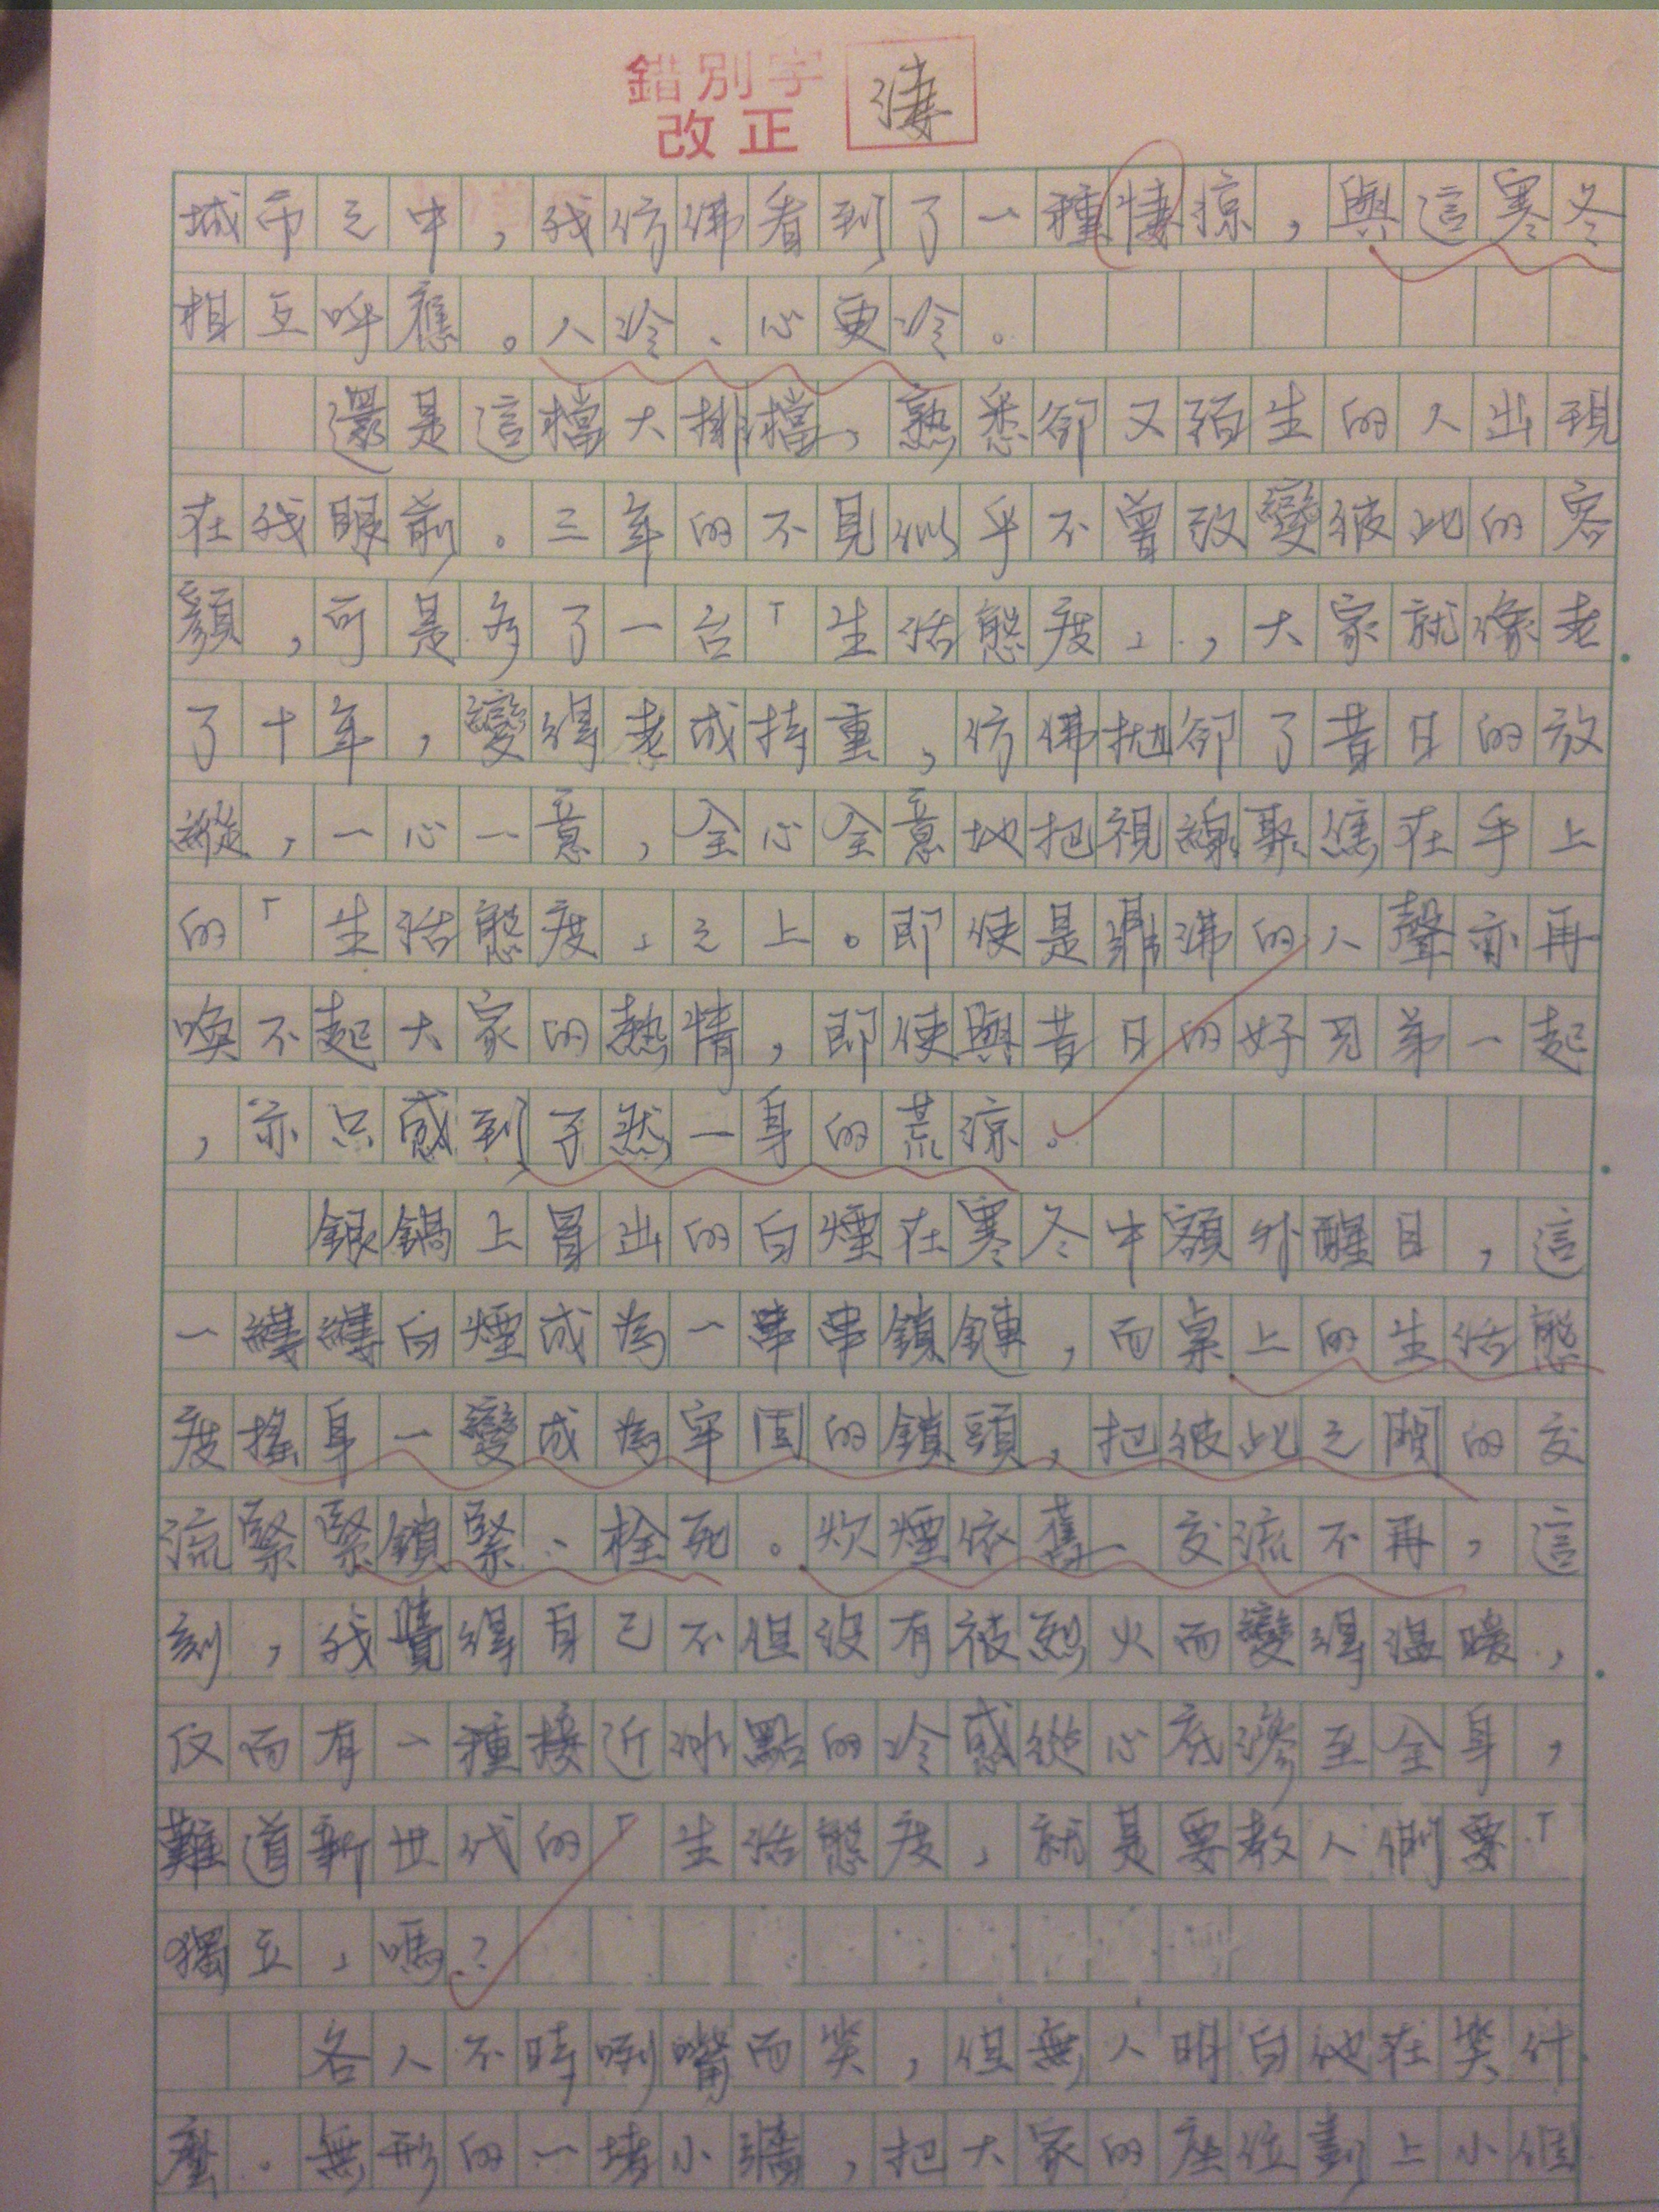 錯別字
改正
淒
城市之中，我仿佛看到了一種悽涼，與這寒冬
相互呼應。人冷、心更冷。
還是這檔大排檔，熟悉卻又陌生的人出現
在我眼前。三年的不見似乎不曾改變彼此的容
顏，可是多了一台「生活態度」，大家就像老
了十年，變得老成持重，仿佛拋卻了昔日的放
縱，一心一意，全心全意地把視線聚焦在手上
的「生活態度」之上。即使是鼎沸的人聲亦再
喚不起大家的熱情，即使與昔日的好兄弟一起
，亦只感到孑然一身的荒涼。
銀鍋上冒出的白煙在寒冬中額外醒目，這
一縷縷白煙成為一串串鎖鏈，而桌上的生活態
度搖身一變成為牢固的鎖頭，把彼此之間的交
流緊緊鎖緊、栓死。炊煙依舊、交流不再，這
刻，我覺得自己不但沒有被烈火而變得溫暖，
反而有一種接近冰點的冷感從心底滲至全身，
難道新世代的「生活態度」就是要教人們要「
獨立」嗎？
各人不時咧嘴而笑，但無人明白他在笑什
麼。無形的一堵小牆，把大家的座位劃上小個